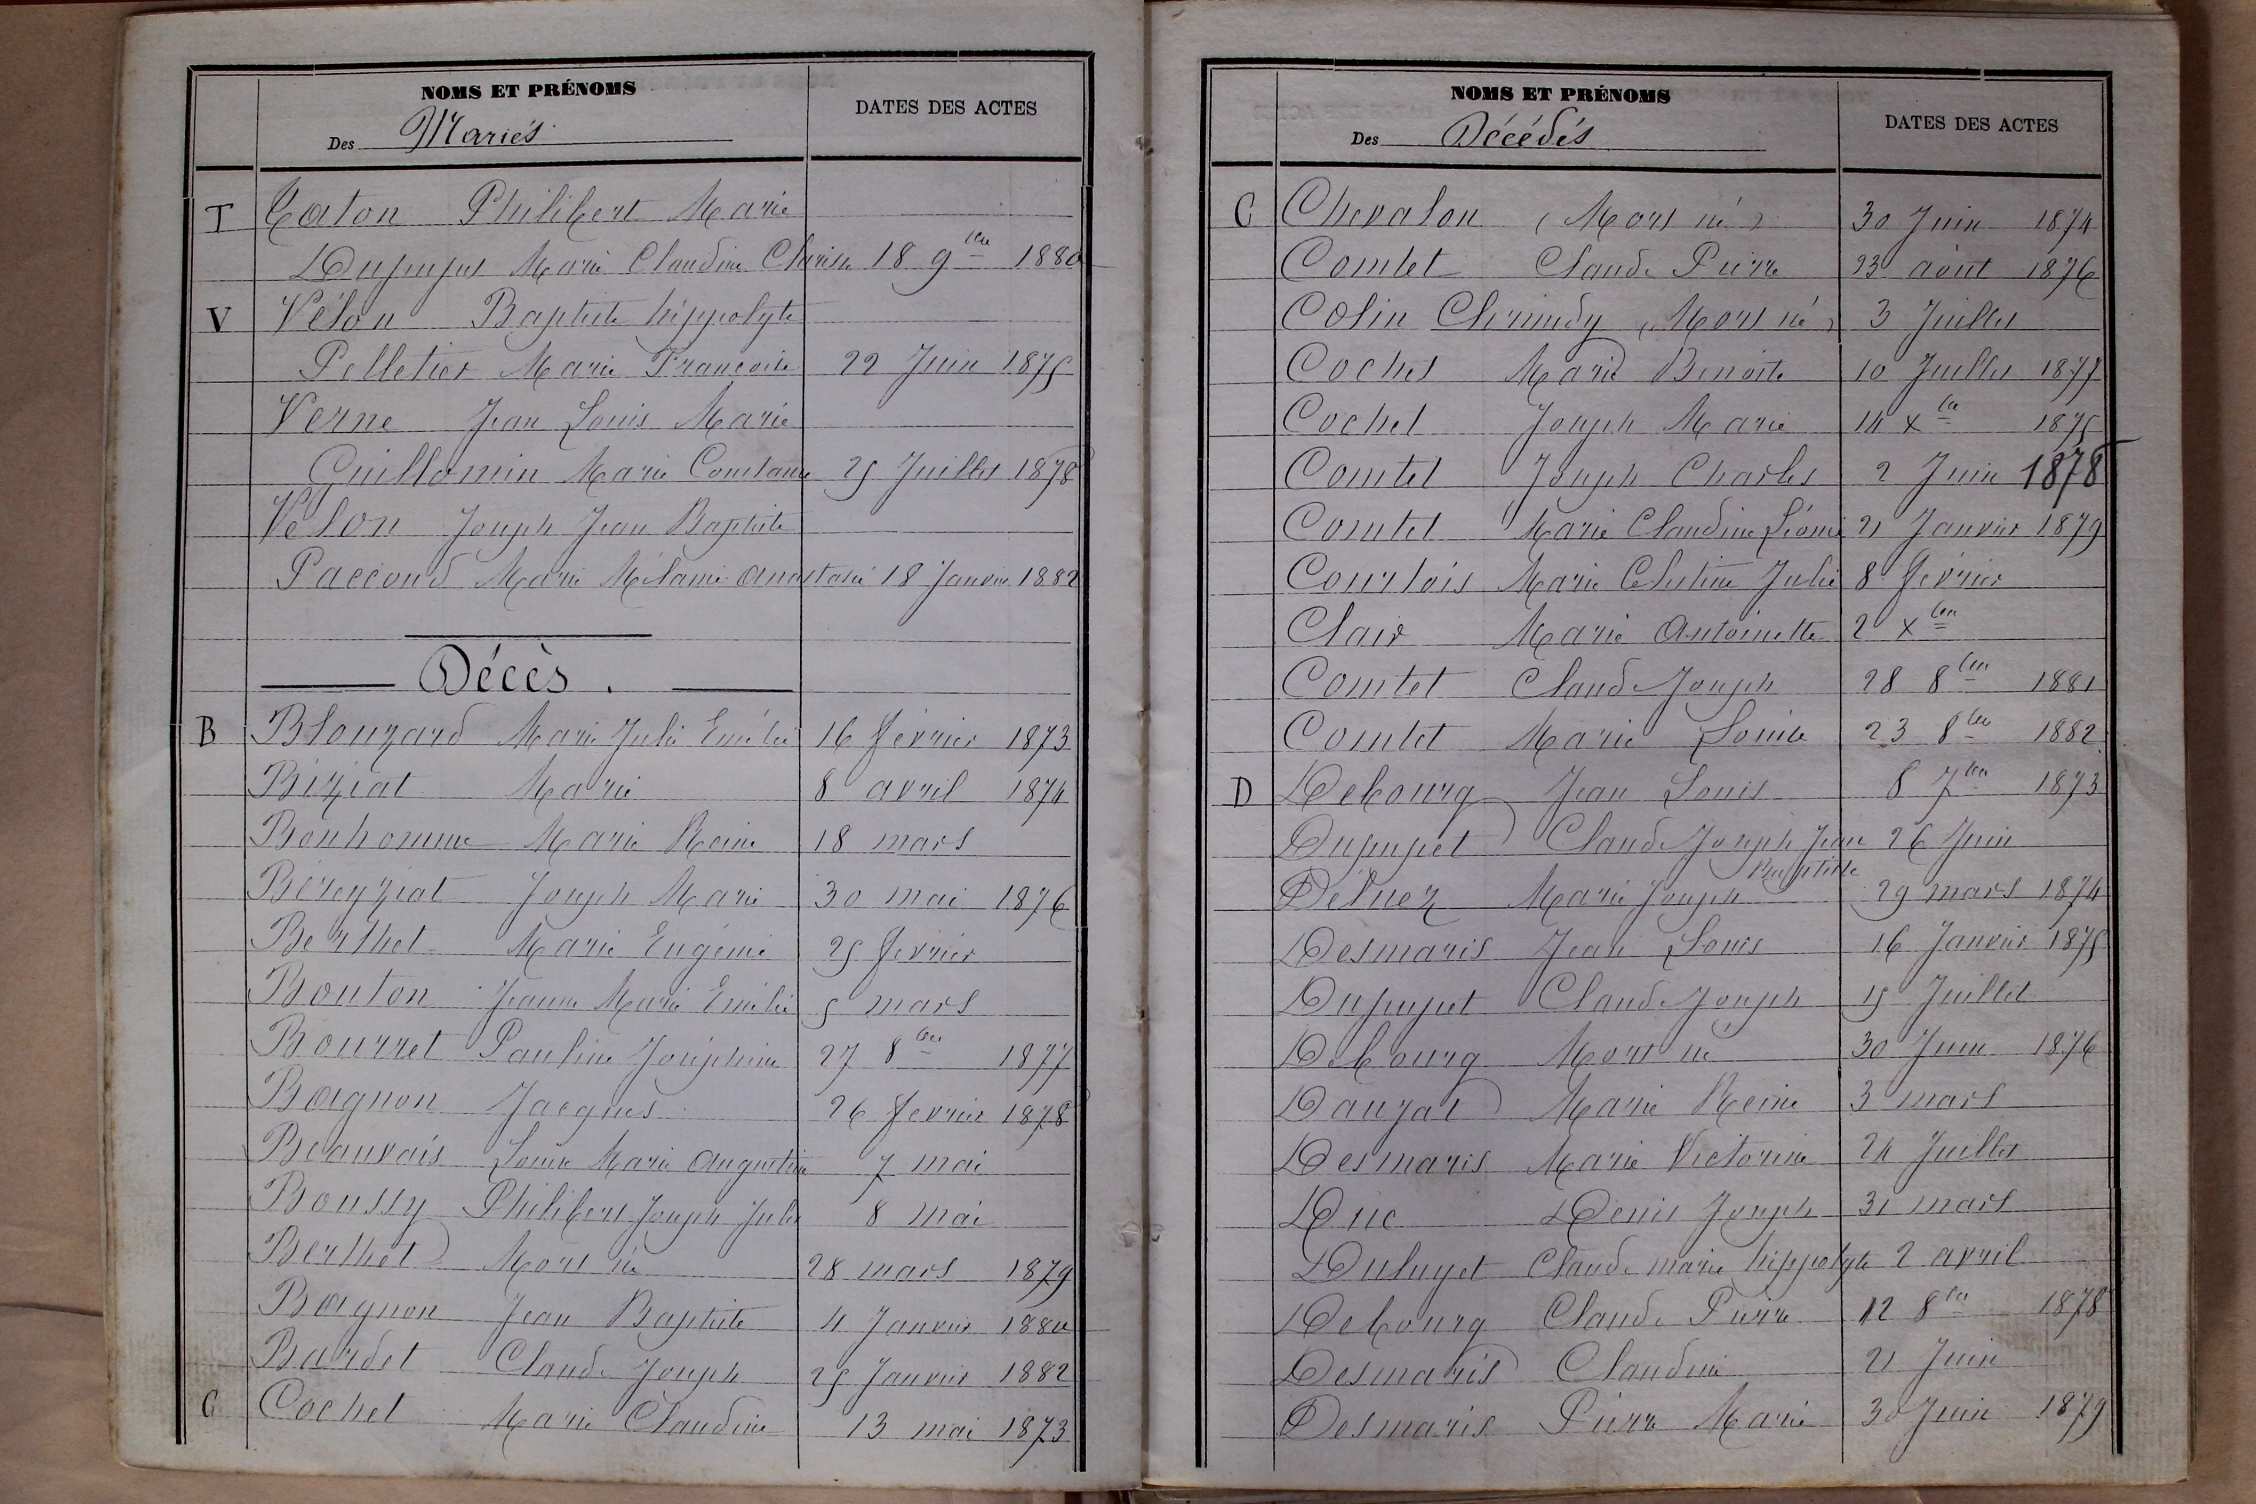 NOMS ET PRÉNOMS
DATES DES ACTES
Des Mariés
T Caton Philibert Marie
Dupupet Marie Claudine Clarisse 18 9bre 1880
V Vélon Baptiste hippolyte
Pelletier Marie Françoise 22 Juin 1875
Verne Jean Louis Marie
Guillomin Marie Constance 25 Juillet 1878
Vélon Joseph Jean Baptiste
Paccoud Marie Mélanie Anastasie 18 Janvier 1882
Décès.
B Blouzard Marie Julie Emélie 16 février 1873
Biziat Marie 8 avril 1874
Bonhomme Marie Reine 18 mars
Béreyziat Joseph Marie 30 mai 1876
Berthet Marie Eugénie 25 février
Bouton Jeanne Marie Emélie 5 mars
Bourret Pauline Joséphine 27 8bre 1877
Boagnon Jacques 26 février 1878
Beauvais Louise Marie Augustine 7 mai
Boussy Philibert Joseph Jules 8 mai
Berthet Mort né 28 mars 1879
Boagnon Jean Baptiste 4 Janvier 1880
Bardet Claude Joseph 25 Janvier 1882
C Cochet Marie Claudine 13 mai 1873
NOMS ET PRÉNOMS
DATES DES ACTES
Des Décédés
C Chevalon (Mort né) 30 Juin 1874
Comtet Claude Pierre 23 août 1876
Colin (Mort né) 3 Juillet
Cochet Marie Benoite 10 Juillet 1877
Cochet Joseph Marie 14 Xbre 1875
Comtet Joseph Charles 2 Juin 1878
Comtet Marie Claudine Léonie 21 Janvier 1879
Courtois Marie Célestine Julie 8 février
Clair Marie Antoinette 2 Xbre
Comtet Claude Joseph 28 8bre 1881
Comtet Marie Louise 23 8bre 1882
D Debourg Jean Louis 8 7bre 1873
Dupupet Claude Joseph Jean 26 Juin
Baptiste
Déluez Marie Joseph 29 mars 1874
Desmaris Jean Louis 16 Janvier 1875
Dupupet Claude Joseph 15 Juillet
Debourg Mort né 30 Juin 1876
Dauzat Marie Reine 3 mars
Desmaris Marie Victorine 24 Juillet
Duc Denis Joseph 31 mars
Dupupet Claude marie hippolyte 2 avril
Debourg Claude Pierre 12 8bre 1878
Desmaris Claudine 21 Juin
Desmaris Pierre Marie 30 Juin 1879